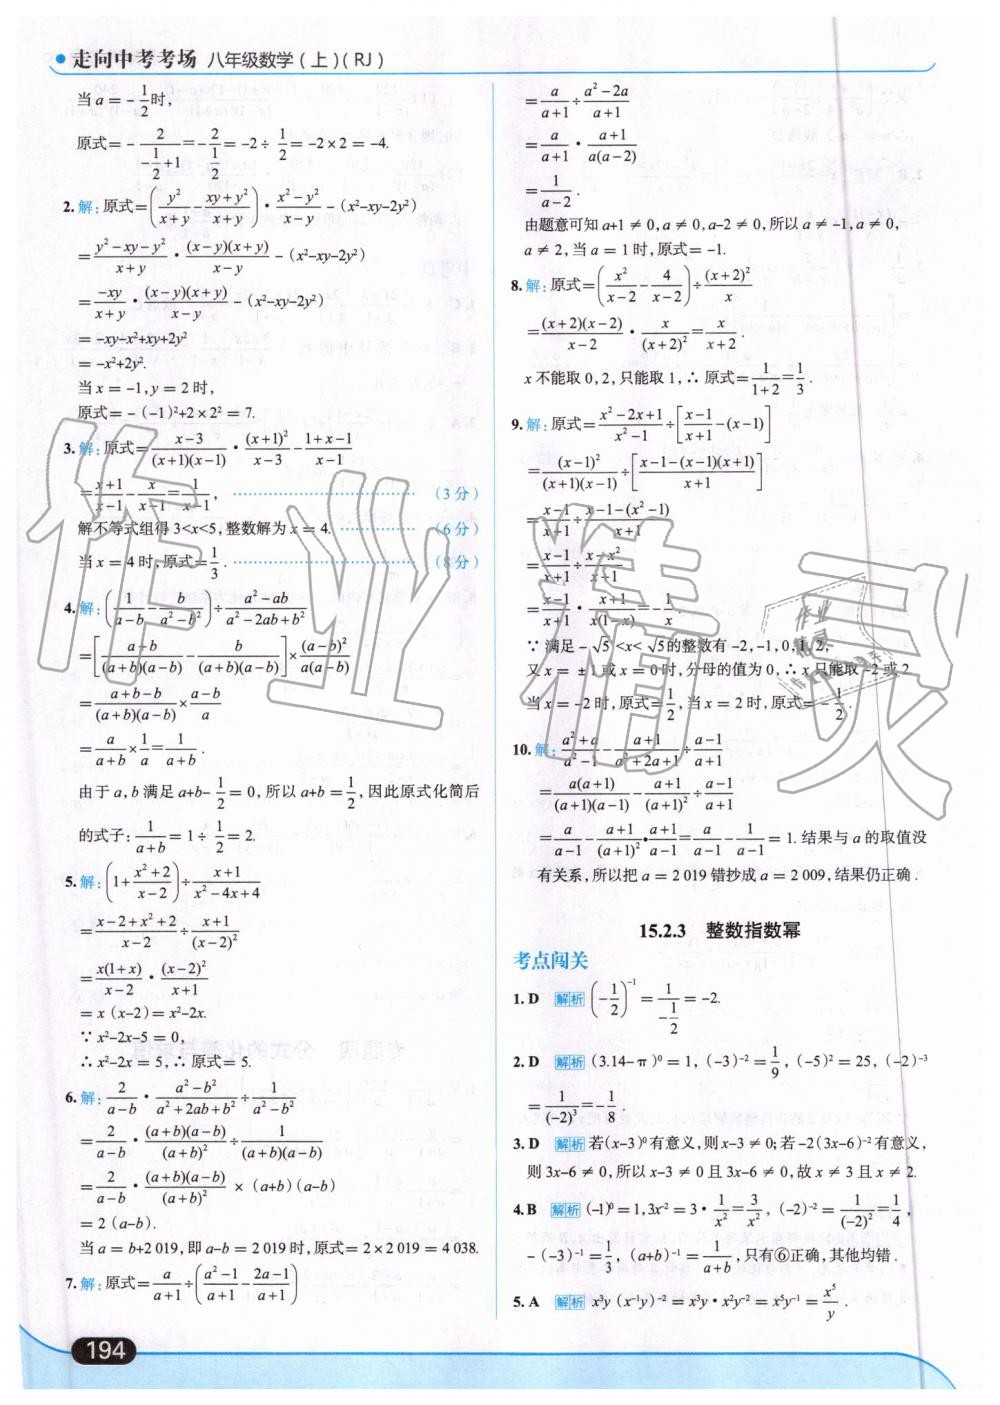 走向中考考场 八年级数学(上)(RJ)
当a=-1/2时,
原式=-2/(1/2+1)=-2/(1/2)=-2÷1/2=-2×2=-4.
2.解:原式=(y²/(x+y)-(xy+y²)/(x+y))·(x²-y²)/(x-y)-(x²-xy-2y²)
=(y²-xy-y²)/(x+y)·(x-y)(x+y)/(x-y)-(x²-xy-2y²)
=-xy/(x+y)·(x-y)(x+y)/(x-y)-(x²-xy-2y²)
=-xy-x²+xy+2y²
=-x²+2y².
当x=-1,y=2时,
原式=-(-1)²+2×2²=7.
3.解:原式=(x-3)/((x+1)(x-1))·(x+1)²/(x-3)-(1+x-1)/(x-1)
=(x+1)/(x-1)-x/(x-1)=1/(x-1), (3分)
解不等式组得3<x<5,整数解为x=4. (6分)
当x=4时,原式=1/3. (8分)
4.解:(1/(a-b)-b/(a²-b²))÷(a²-ab)/(a²-2ab+b²)
=[(a+b)/((a+b)(a-b))-b/((a+b)(a-b))]×(a-b)²/(a(a-b))
=(a+b-b)/((a+b)(a-b))×(a-b)/a
=a/(a+b)×1/a=1/(a+b).
由于a,b满足a+b-1/2=0,所以a+b=1/2,因此原式化简后
的式子:1/(a+b)=1÷1/2=2.
5.解:(1+(x²+2)/(x-2))÷(x+1)/(x²-4x+4)
=(x-2+x²+2)/(x-2)÷(x+1)/(x-2)²
=x(1+x)/(x-2)·(x-2)²/(x+1)
=x(x-2)=x²-2x.
∵x²-2x-5=0,
∴x²-2x=5,∴原式=5.
6.解:2/(a-b)·(a²-b²)/(a²+2ab+b²)÷1/(a²-b²)
=2/(a-b)·(a+b)(a-b)/(a+b)²÷1/((a+b)(a-b))
=2/(a-b)·(a+b)(a-b)/(a+b)²×(a+b)(a-b)
=2(a-b).
当a=b+2 019,即a-b=2 019时,原式=2×2 019=4 038.
7.解:原式=a/(a+1)÷((a²-1)/(a+1)-(2a-1)/(a+1))
=a/(a+1)÷(a²-2a)/(a+1)
=a/(a+1)·(a+1)/(a(a-2))
=1/(a-2).
由题意可知a+1≠0,a≠0,a-2≠0,所以a≠-1,a≠0,
a≠2,当a=1时,原式=-1.
8.解:原式=(x²/(x-2)-4/(x-2))÷(x+2)²/x
=(x+2)(x-2)/(x-2)·x/(x+2)²=x/(x+2).
x不能取0,2,只能取1,∴原式=1/(1+2)=1/3.
9.解:原式=(x²-2x+1)/(x²-1)÷[(x-1)/(x+1)-(x-1)]
=(x-1)²/((x+1)(x-1))÷[(x-1-(x-1)(x+1))/(x+1)]
=(x-1)/(x+1)÷(x-1-(x²-1))/(x+1)
=(x-1)/(x+1)÷(x-x²)/(x+1)
=(x-1)/(x+1)·(x+1)/(x(1-x))=-1/x.
∵满足-√5<x<√5的整数有-2,-1,0,1,2.
又x=±1或x=0时,分母的值为0,∴x只能取-2或2.
当x=-2时,原式=1/2,当x=2时,原式=-1/2.
10.解:(a²+a)/(a²-1)-(a+1)/(a²+2a+1)÷(a-1)/(a+1)
=a(a+1)/((a+1)(a-1))-(a+1)/(a+1)²÷(a-1)/(a+1)
=a/(a-1)-(a+1)/(a+1)²·(a+1)/(a-1)=a/(a-1)-1/(a-1)=1.结果与a的取值没
有关系,所以把a=2 019错抄成a=2 009,结果仍正确.
15.2.3 整数指数幂
考点闯关
1.D 解析 (-1/2)⁻¹=1/(-1/2)=-2.
2.D 解析 (3.14-π)⁰=1,(-3)⁻²=1/9,(-5)²=25,(-2)⁻³
=1/(-2)³=-1/8.
3.D 解析 若(x-3)⁰有意义,则x-3≠0;若-2(3x-6)⁻²有意义,
则3x-6≠0,所以x-3≠0且3x-6≠0,故x≠3且x≠2.
4.B 解析 (-1)⁰=1,3x⁻²=3·1/x²=3/x²,(-2)⁻²=1/(-2)²=1/4,
-(-3)⁻¹=1/3,(a+b)⁻¹=1/(a+b),只有⑥正确,其他均错.
5.A 解析 x³y(x⁻¹y)⁻²=x³y·x²y⁻²=x⁵y⁻¹=x⁵/y.
194
作业精灵